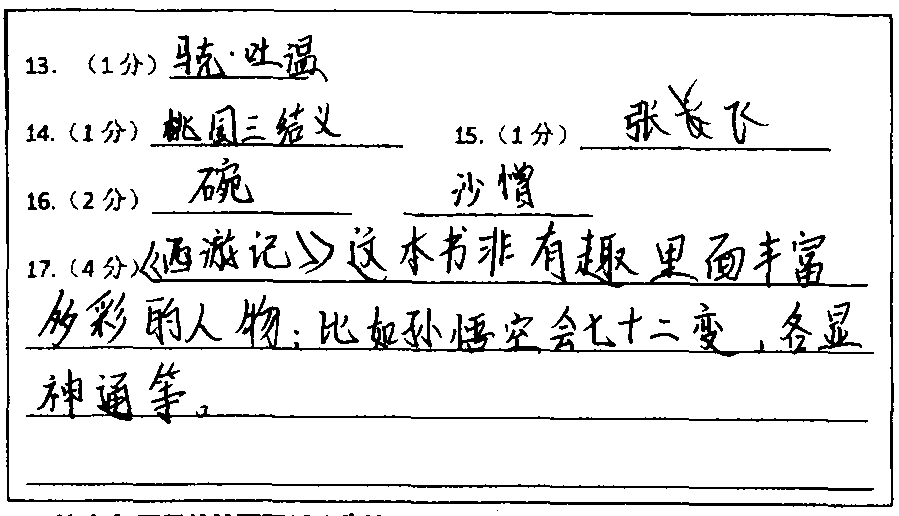 13. （1分）马克·吐温
14.（1分）桃园三结义 15.（1分）张飞
16.（2分）碗 沙憎
17.（4分）《西游记》这本书非有趣里面丰富
多彩的人物；比如孙悟空会七十二变，各显
神通等。